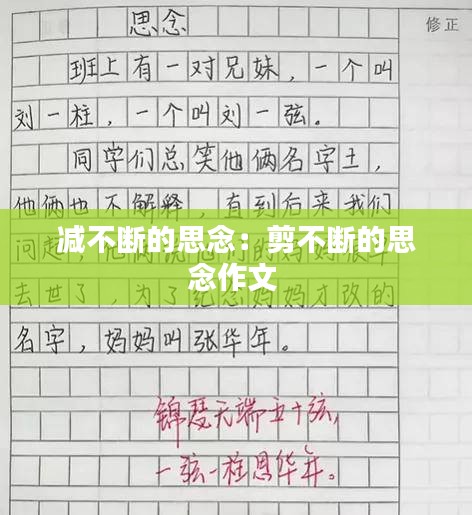 思念
修正
班上有一对兄妹，一个叫
刘一柱，一个叫刘一弦。
同学们总笑他俩名字土，
他俩也不解释，直到后来我们
减不断的思念：剪不断的思
念作文
问起，他俩说他们的妈妈很早
去世了，为了纪念妈妈才改的
名字，妈妈叫张华年。
锦瑟无端五十弦，
一弦一柱思华年。